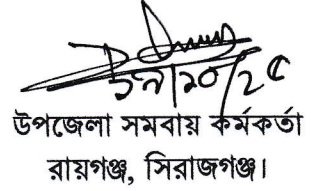 উপজেলা সমবায় কর্মকর্তা
রায়গঞ্জ, সিরাজগঞ্জ।